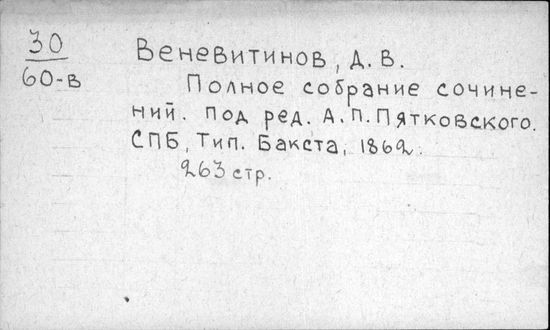 30
60-в
Веневитинов, Д. В.
Полное собрание сочине-
ний. Под ред. А.П.Пятковского.
СПБ, Тип. Бакста, 1862.
263 стр.